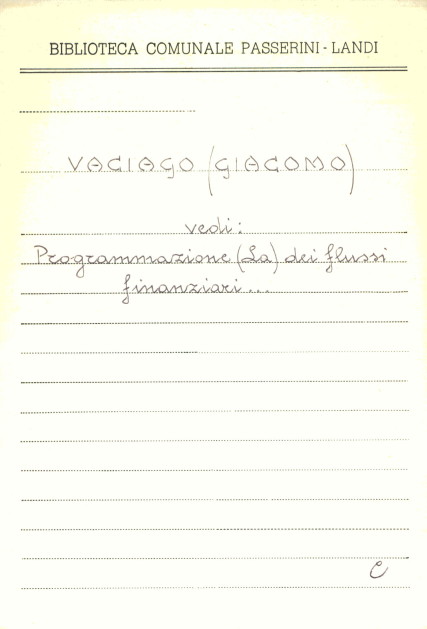 BIBLIOTECA COMUNALE PASSERINI - LANDI
VACIAGO (GIACOMO)
vedi:
Programmazione (La) dei flussi
finanziari...
C